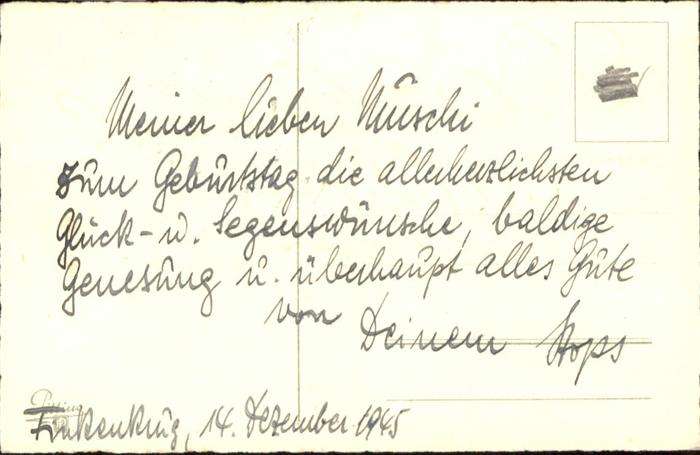 Meiner lieben Muschi
zum Geburtstag die allerherzlichsten
Glück- u. Segenswünsche, baldige
Genesung u. überhaupt alles Gute
von Deinem Stops
Finkenkrug, 14. Dezember 1945